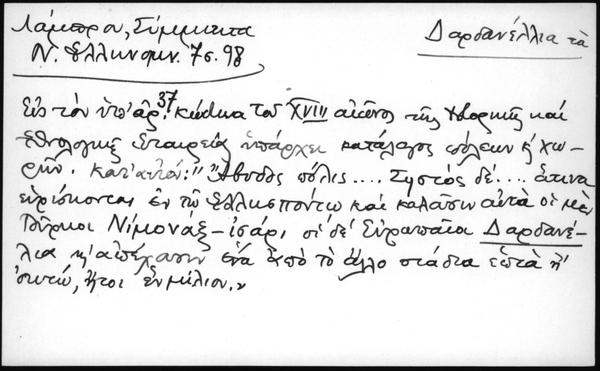 Λάμπρου, Σύμμικτα
Ν. Ελληνομν. 7 σ. 98
Δαρδανέλλια τὰ
Εἰς τὸν ὑπ' ἀρ. 37 κώδικα τοῦ XVIII αἰῶνος τῆς Ἱστορικῆς καὶ
Ἐθνολογικῆς Ἑταιρείας ὑπάρχει κατάλογος πόλεων ἢ χω-
ρῶν. κατ' αὐτόν: "Ἄβυδος πόλις.... Σηστὸς δέ.... ἅτινα
εὑρίσκονται ἐν τῷ Ἑλλησπόντῳ καὶ καλοῦσιν αὐτὰ οἱ μὲν
Τοῦρκοι Νίμονάξ-ἰσάρ, οἱ δὲ Εὐρωπαῖοι Δαρδανέ-
λια κ' ἀπέχουσιν ἕνα ἀπὸ τὸ ἄλλο στάδια ἑπτὰ ἢ
ὀκτώ, ἤτοι ἓν μίλιον."